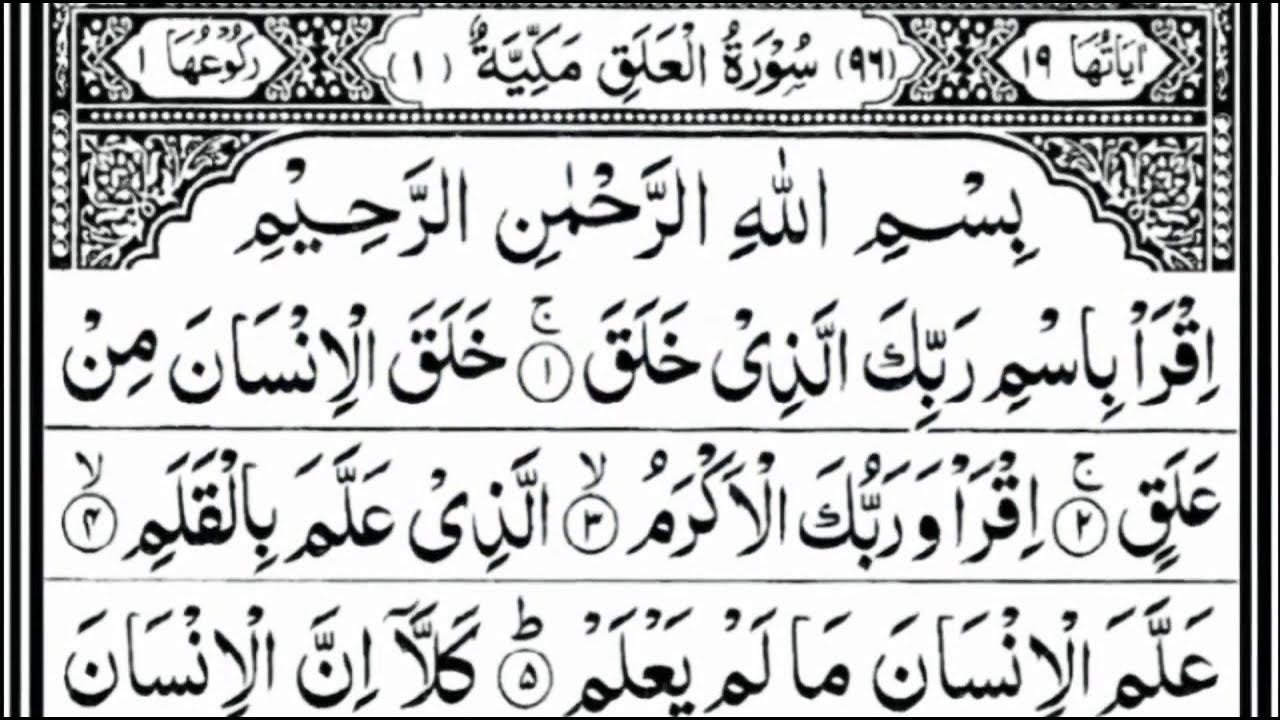 اٰيَاتُهَا ١٩ (٩٦) سُوْرَةُ الْعَلَقِ مَكِّيَّةٌ (١) رُكُوْعُهَا ١
بِسْمِ اللهِ الرَّحْمٰنِ الرَّحِيْمِ
اِقْرَاْ بِاسْمِ رَبِّكَ الَّذِىْ خَلَقَ ۚ ۝١ خَلَقَ الْاِنْسَانَ مِنْ
عَلَقٍ ۚ ۝٢ اِقْرَاْ وَرَبُّكَ الْاَكْرَمُ ۙ ۝٣ الَّذِىْ عَلَّمَ بِالْقَلَمِ ۙ ۝۴
عَلَّمَ الْاِنْسَانَ مَا لَمْ يَعْلَمْ ؕ ۝۵ كَلَّآ اِنَّ الْاِنْسَانَ